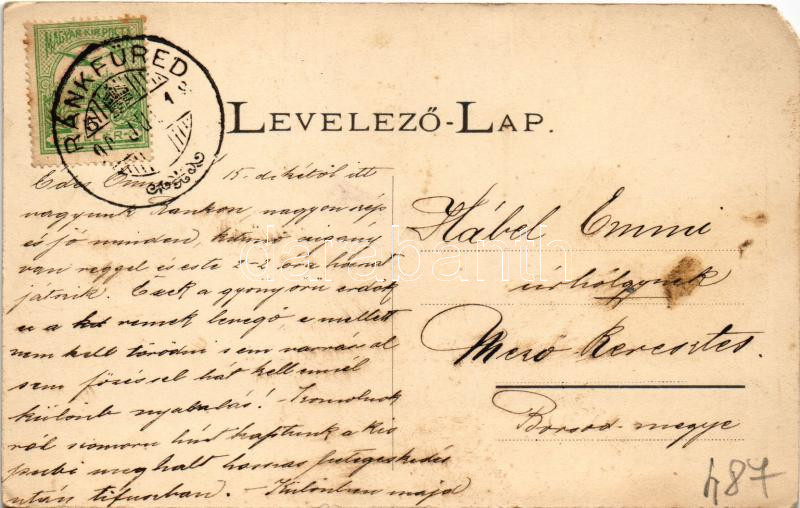 MAGYAR KIR. POSTA
RÁNKFÜRED
LEVELEZŐ-LAP.
Édes 15.-dikétől itt
vagyunk Rankon, nagyon szép
és jó minden, kitünő cigány
van reggel és este 2-2 óra hosszat
játszik. Ezek a gyönyörü erdők
ez a remek levegő, e mellett
nem kell törődni sem varrással
sem főzéssel hát kell ennél
különb nyaralás! -
ról szomoru hírt kaptunk a kis
meghalt hosszas
után tifuszban. - Különben majd
Hábel Emmi
úrhölgynek
Mező Keresztes.
Borsod-megye
487
darabanth